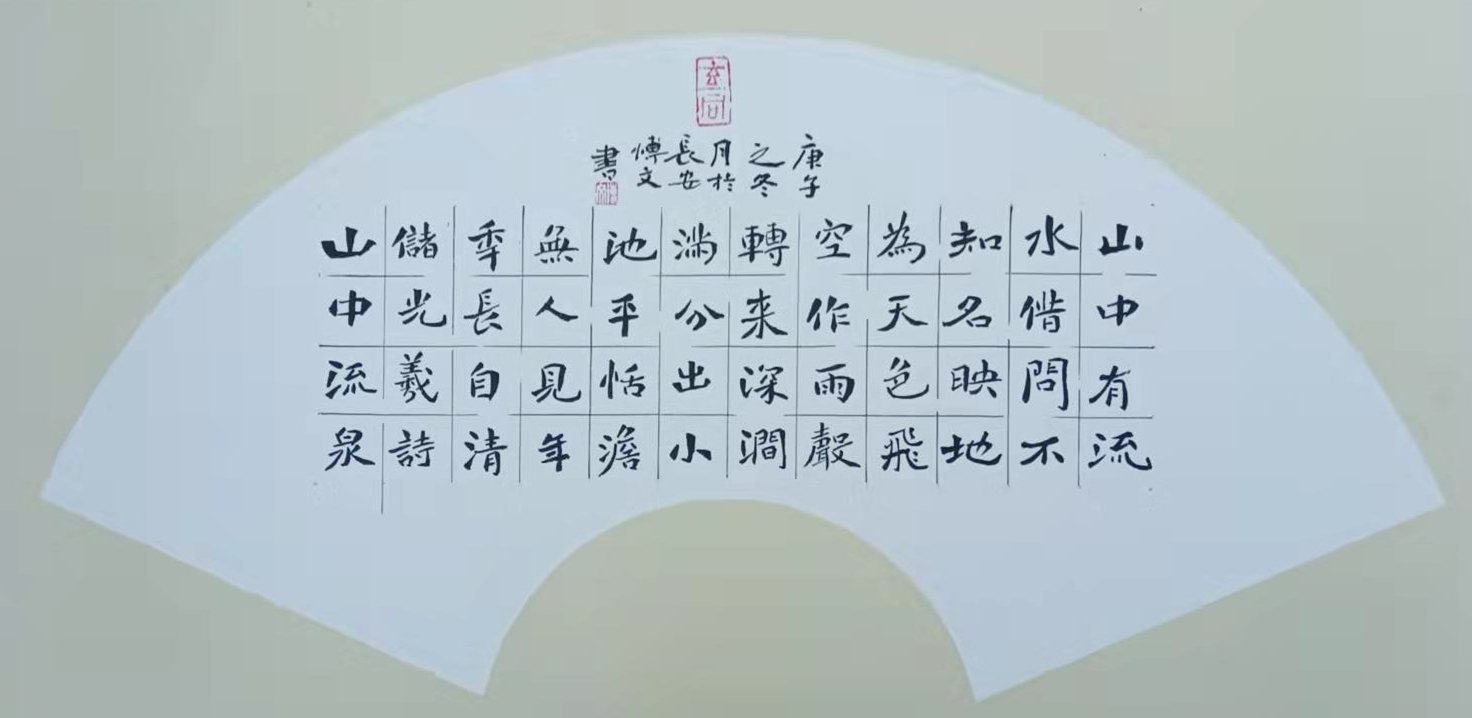 玄同
庚子
之冬
月於
長安
愽文
書
山中有流
水借問不
知名映地
為天色飛
空作雨聲
轉来深澗
滿分出小
池平恬澹
無人見年
秊長自清
儲光羲詩
山中流泉